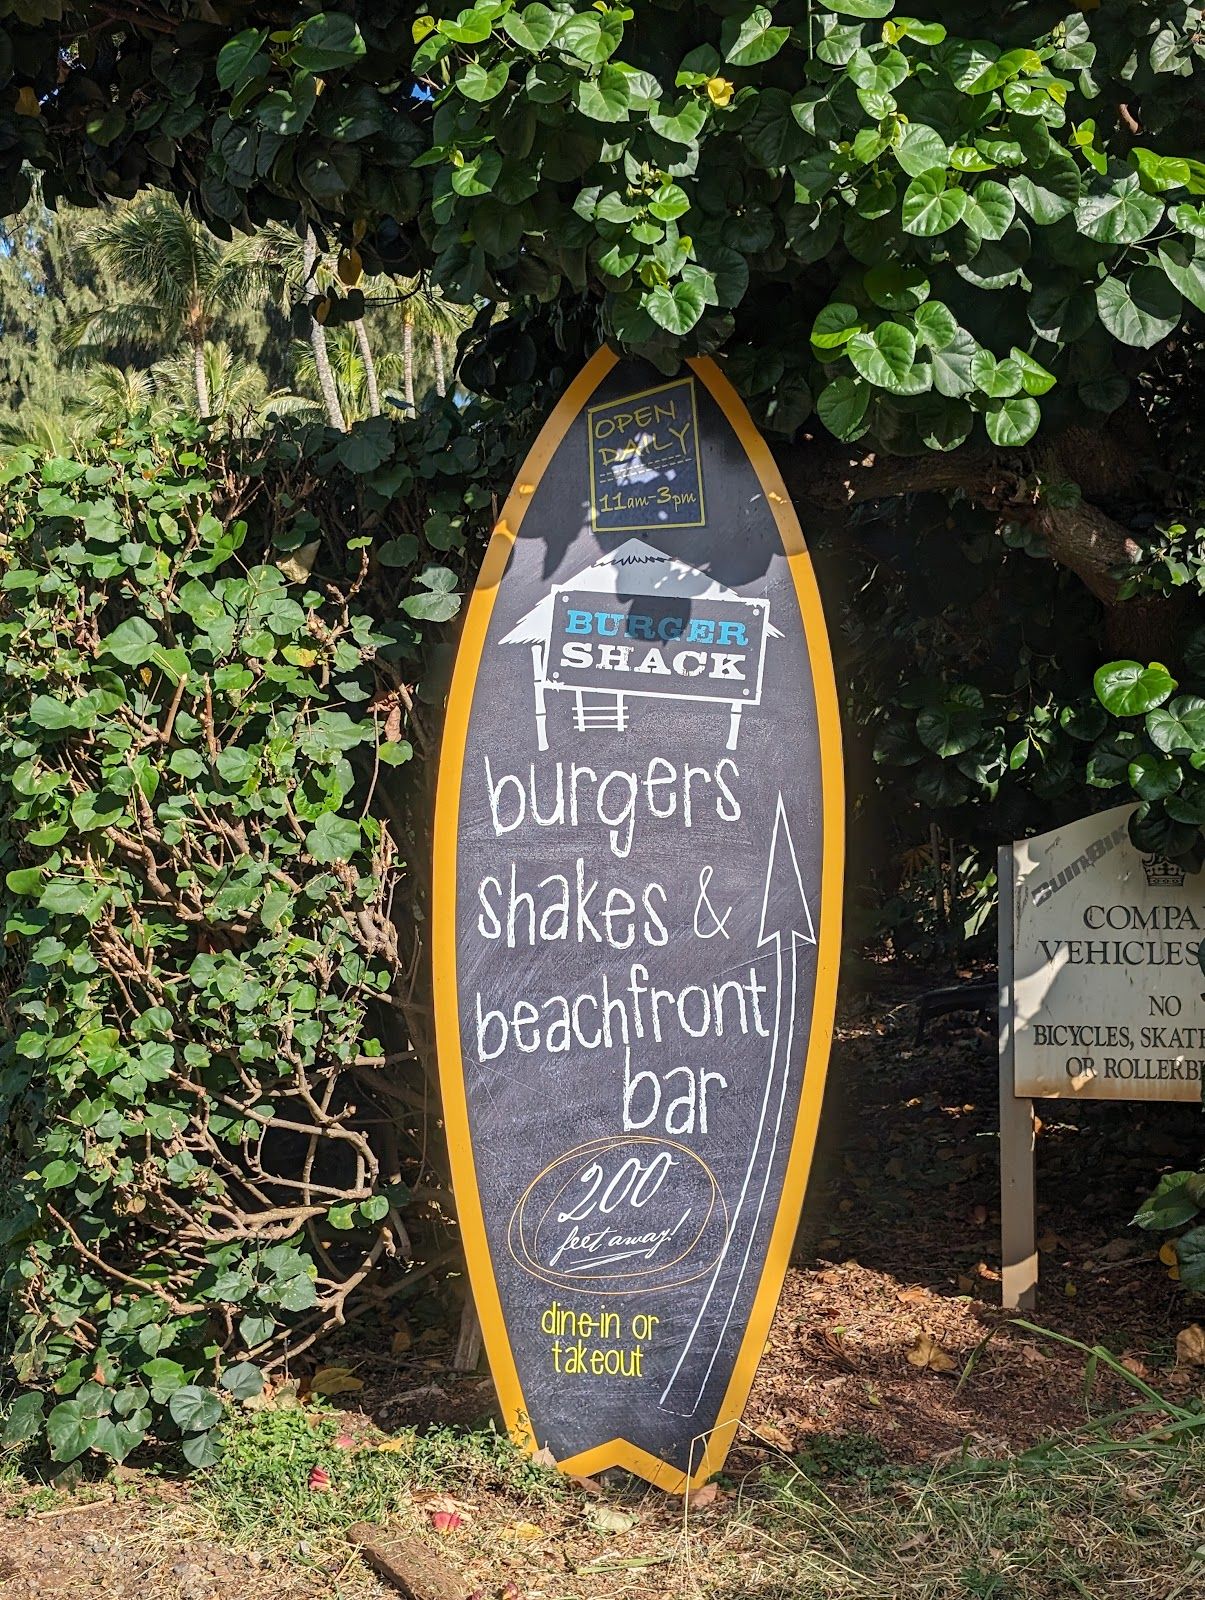 OPEN
DAILY
11am-3pm
BURGER
SHACK
burgers
shakes &
beachfront
bar
200
feet away!
dine-in or
takeout
COMPA
VEHICLES
NO
BICYCLES, SKATE
OR ROLLERB